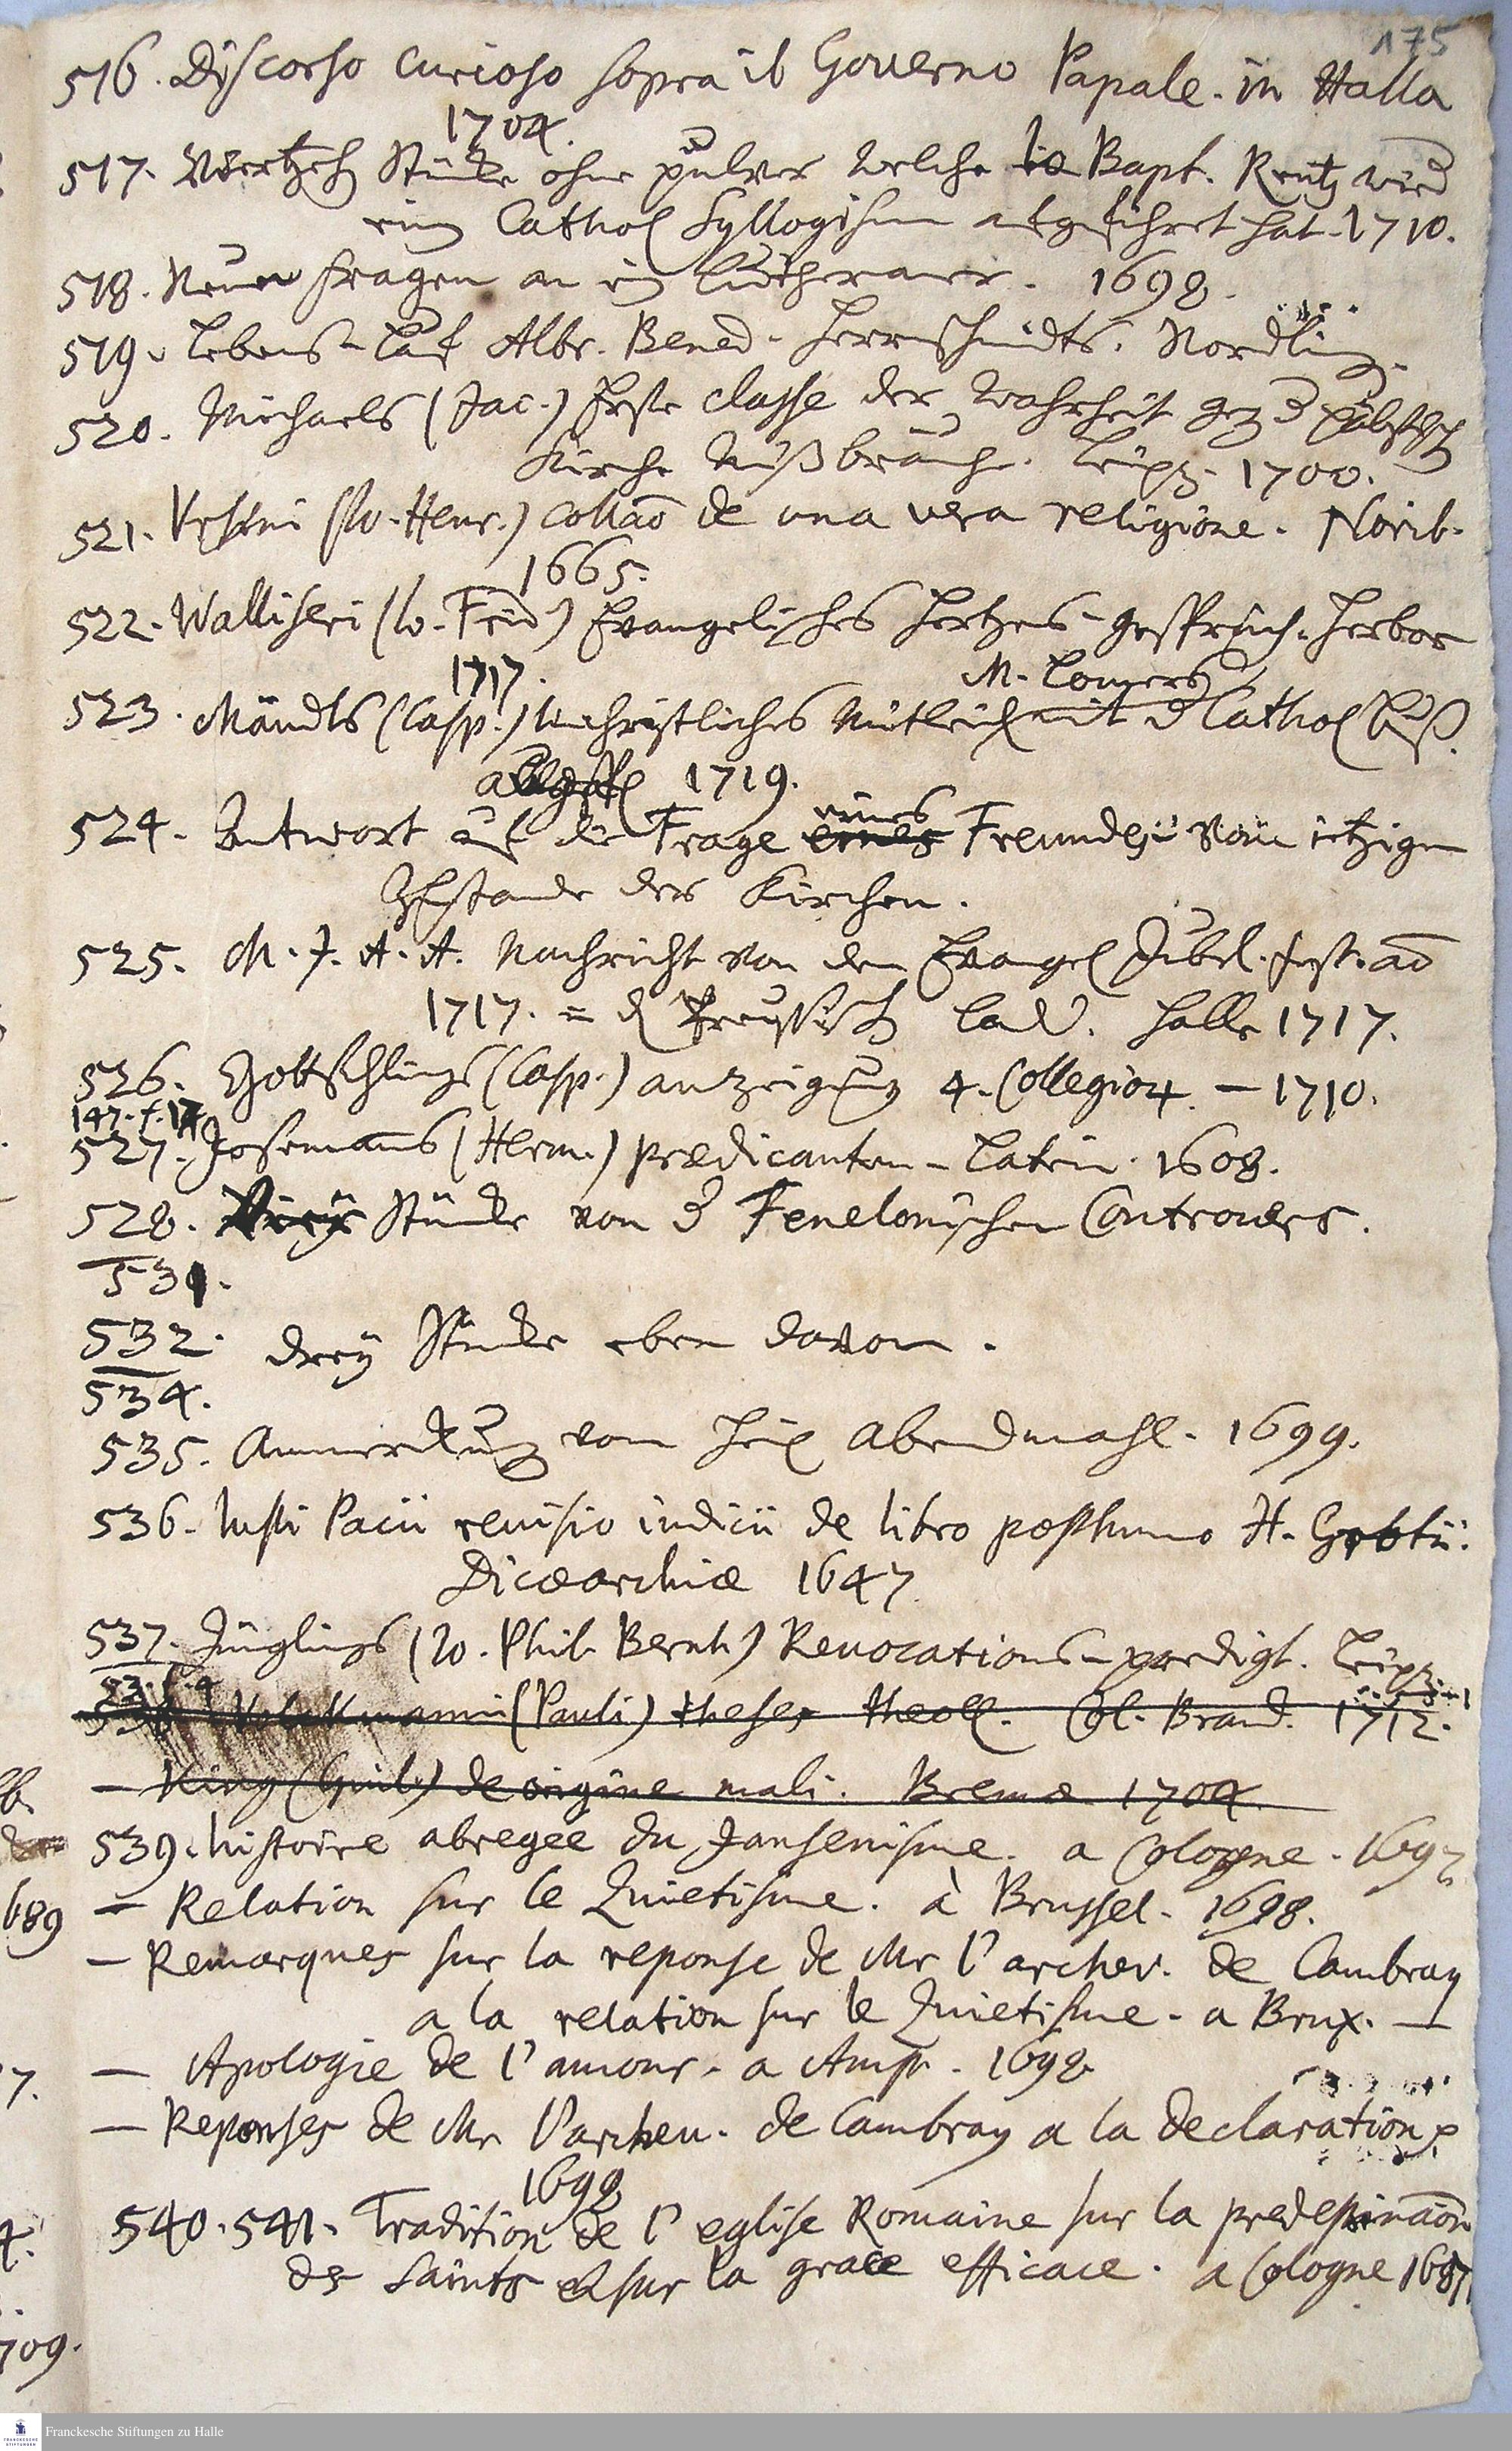 175
516. Discorso curioso sopra il Governo Papale. in Halla
1704.
517. Viertzeh Stücke ohne pulver welche Bapt. Rentz wied
ein Cathol Syllogismum abgeführet hat. 1710.
518. Neun fragen an ein Lutheraner. 1698.
519. Lebens-Lauf Albr. Bened. Herrnschmidts. Nördling.
520. Michaels (Jac.) Erste classe der Wahrheit geg d päbstsch
Kirche Mißbräuche. Leipz. 1700.
521. Ursini (Io. Henr.) Collatio de una vera religione. Norib.
1665.
522. Walliseri (Io. Frid) Evangelisches Hertzens-gespräch. Herbor
1717. M. Lomers
523. Mändls (Casp.) Unchristliches Mitleid mit d Cathol
1719.
524. Antwort auf die Frage eines Freundes vom ietzigen
Zustande der Kirchen.
525. M. J. A. A. Nachricht von dem Evangel Jubel-fest. ao
1717. in d Preussisch Land. Halle 1717.
526. Gottschlings (Casp.) anzeigung 4. Collegior. — 1710.
147. f. 17
527. Josemans (Herm.) Prædicanten-Latein. 1608.
528. Stücke von d Fenelonischen Controvers.
531.
532. drey Stücke eben davon.
534.
535. Anmerckung vom Heil Abendmahl. 1699.
536. Iusti Pacii revisio iudicii de libro posthumo H. Grotii.
Dicæarchiæ 1647.
537. Jünglings (Io. Phil. Bernh) Revocations-predigt. Leipz.
538. Volckmanni (Pauli) theses theoll. Col. Brand. 1712.
— King (Guil.) de origine mali. Bremæ 1704.
539. histoire abregee du Jansenisme. a Cologne. 1697
— Relation sur le Quietisme. à Brussel. 1698.
— Remarques sur la reponse de Mr l'archev. de Cambray
a la relation sur le Quietisme. a Brux. —
— Apologie de l'amour. a Amst. 1698
— Reponses de Mr l'archev. de Cambray a la declaration
1698
540. 541. Tradition de l'eglise Romaine sur la predestinaõn
des saints et sur la grace efficace. a Cologne 1687
689
7.
709.
Franckesche Stiftungen zu Halle